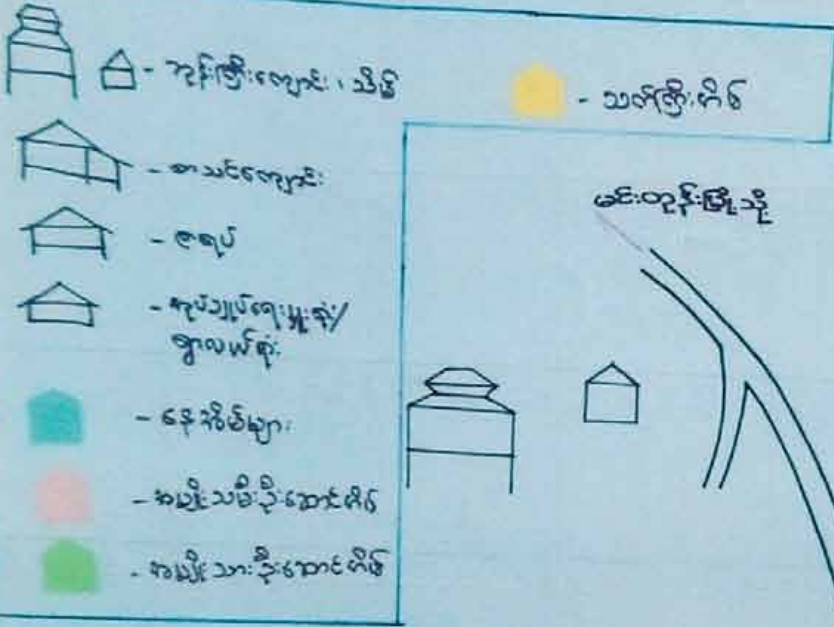 - ဘုန်းကြီးကျောင်း၊ သိမ်
- စာသင်ကျောင်း
- ဇရပ်
- အုပ်ချုပ်ရေးမှူးရုံး/
ရွာလယ်ရုံး
- နေအိမ်များ
- အမျိုးသမီးဦးဆောင်အိမ်
- အမျိုးသားဦးဆောင်အိမ်
- သက်ကြီးအိမ်
မင်းတုန်းမြို့သို့